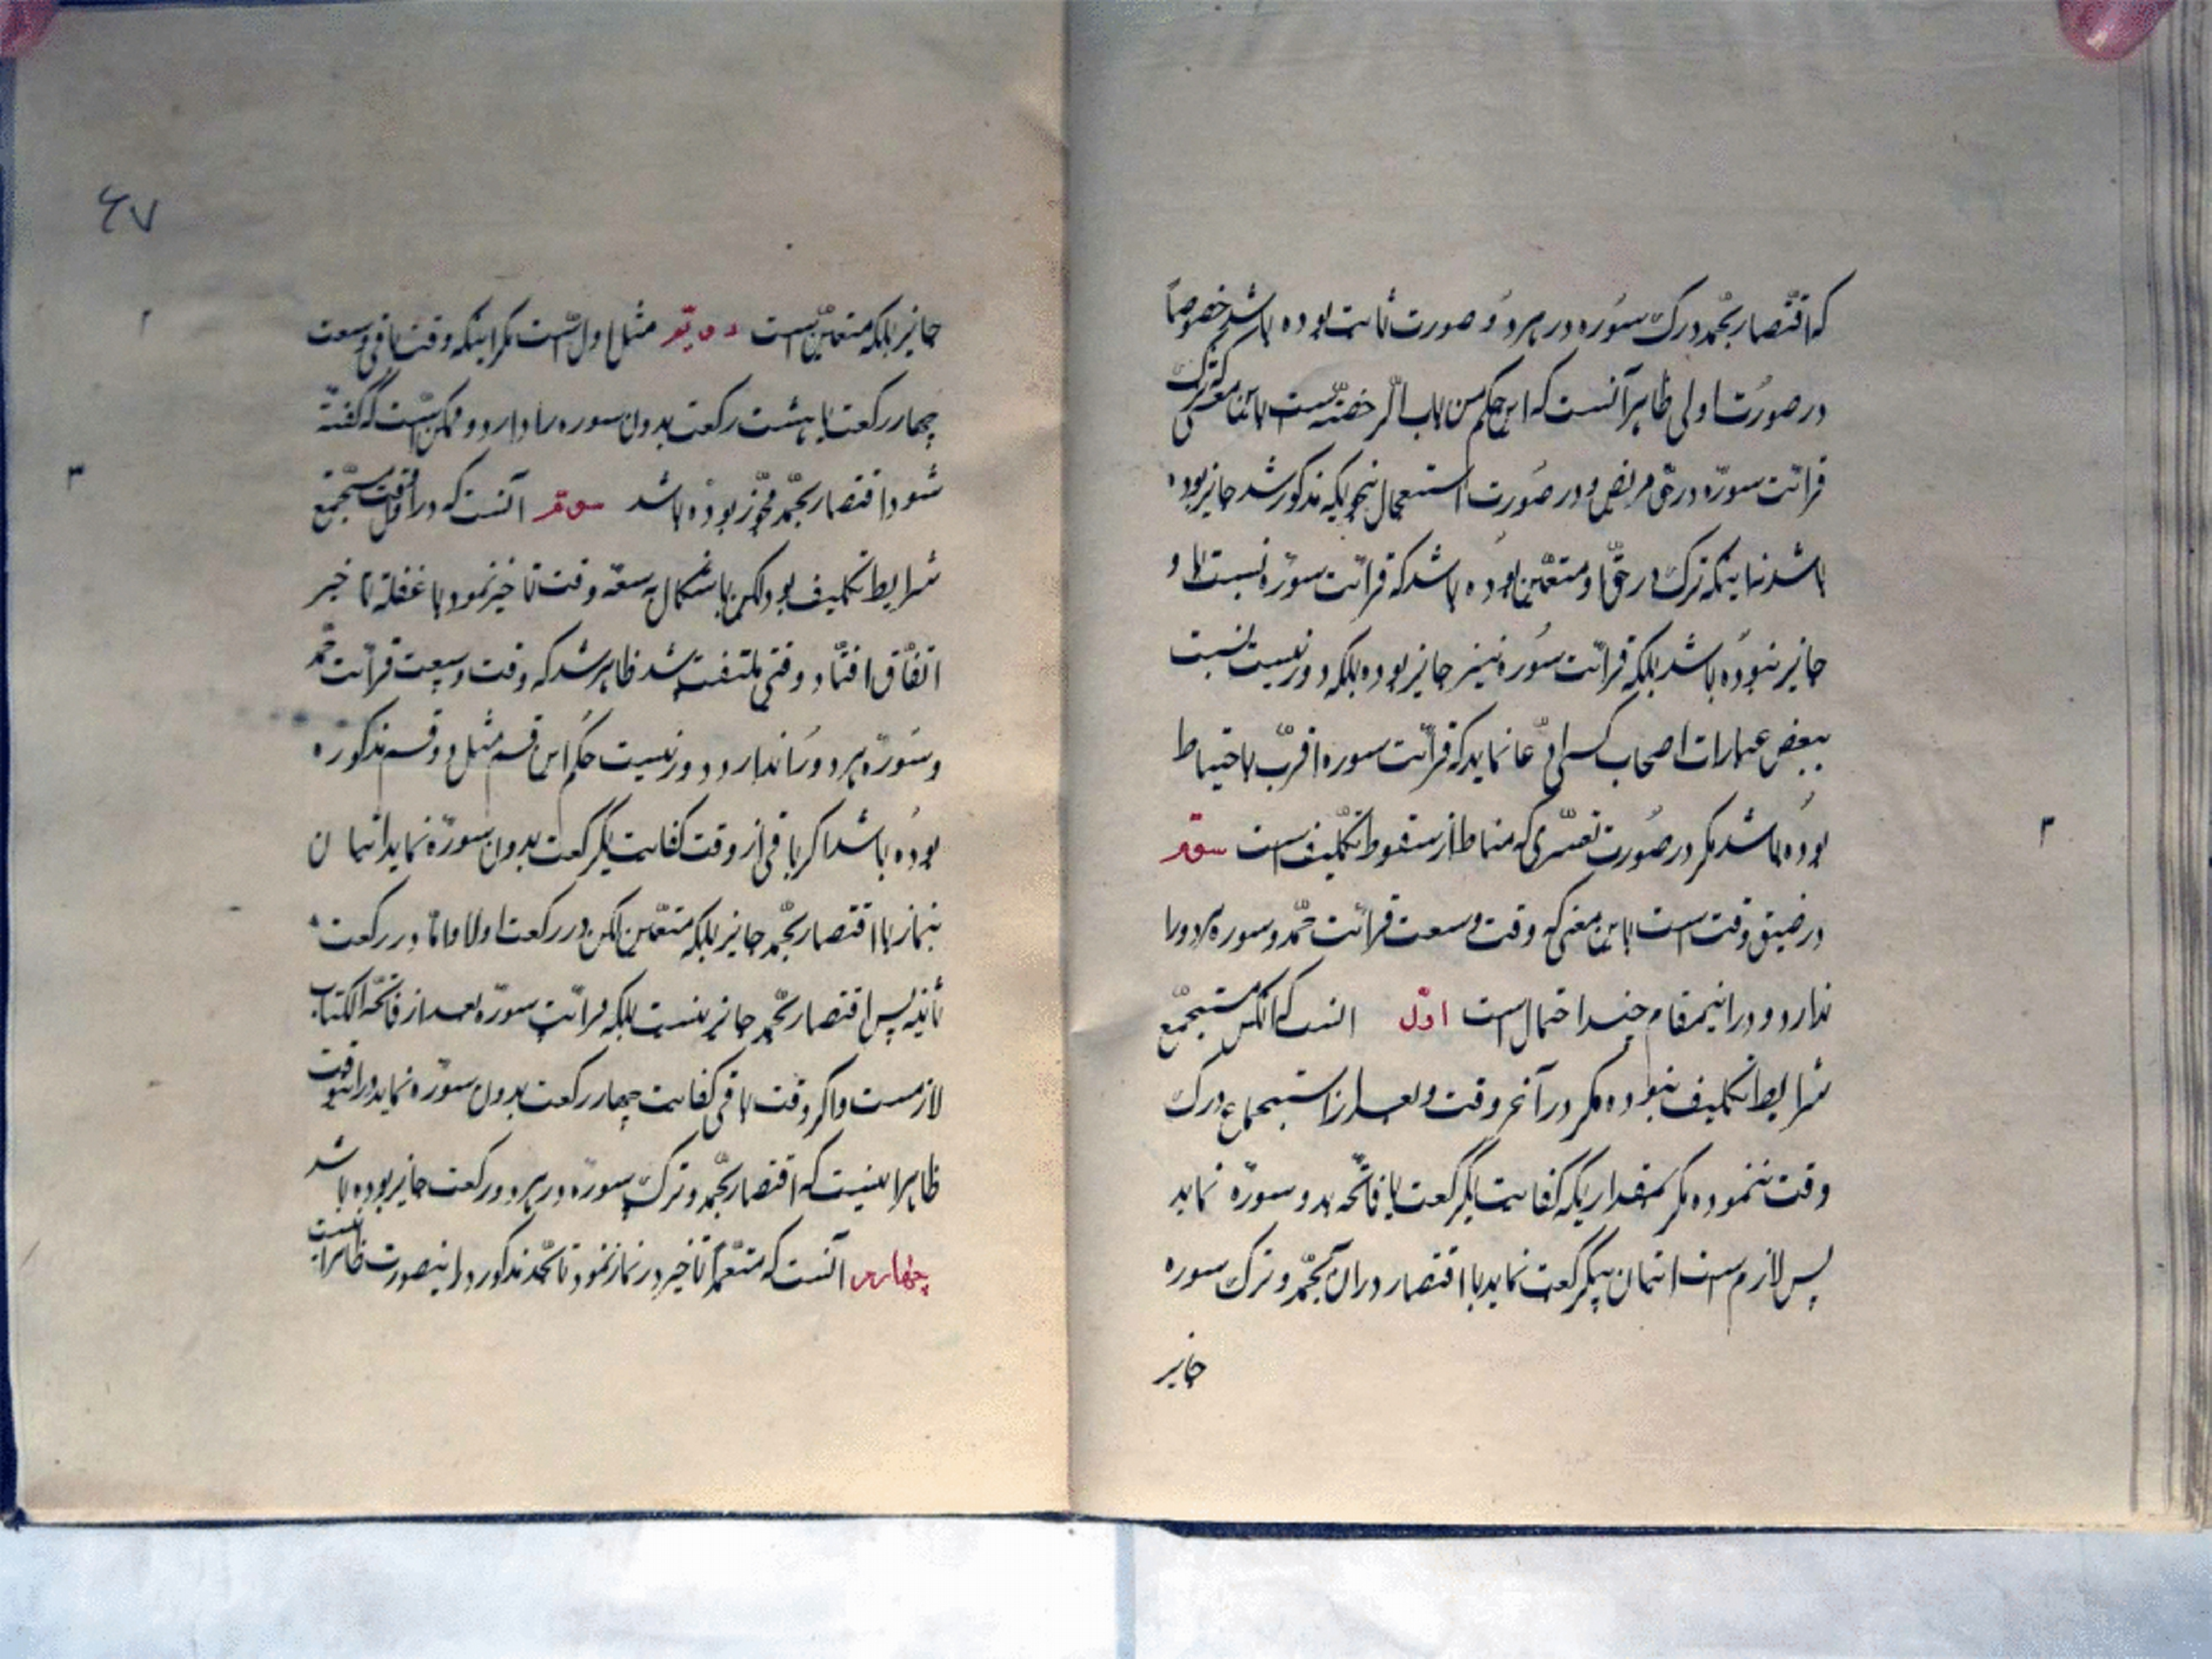 که اقتصار بحمد و ترک سوره در هر دو صورت ثابت بوده باشد خصوصاً
در صورت اولی ظاهر آنست که این حکم من باب الرخصة است باین معنی که ترک
قرائت سوره در حق مریض و در صورت استعجال بنحویکه مذکور شد جایز بوده
باشد نه اینکه ترک در حق او متعین بوده باشد که قرائت سوره نسبت باو
جایز نبوده باشد بلکه قرائت سوره نیز جایز بوده بلکه دور نیست نسبت
ببعض عبارات اصحاب کسی ادعا نماید که قرائت سوره اقرب باحتیاط
بوده باشد مگر در صورت تعسّری که مناط از سقوط تکلیف است سوّم
در ضیق وقت است باین معنی که وقت وسعت قرائت حمد و سوره هر دو را
ندارد و در اینمقام چند احتمال است اوّل آنست که آنکس مستجمع
شرایط تکلیف نبوده مگر در آخر وقت و بعد از استجماع درک
وقت ننموده مگر بمقداریکه کفایت یکرکعت با فاتحه بدون سوره نماید
پس لازم است اتیان بیکرکعت نماید با اقتصار در آن بحمد و ترک سوره
جایز
۶۷
جایز بلکه متعیّن است دویّم مثل اول است مگر اینکه وقت باقی وسعت
چهار رکعت یا هشت رکعت بدون سوره را دارد و ممکن است که گفته
شود اقتصار بحمد مجوّز بوده باشد سوّم آنست که در اول وقت مستجمع
شرایط تکلیف بود لکن باتکال به سعه وقت تأخیر نمود یا غفلة تأخیر
اتفاق افتاد وقتی ملتفت شد ظاهر شد که وقت وسعت قرائت حمد
و سوره هر دو را ندارد و دور نیست حکم این قسم مثل دو قسم مذکوره
بوده باشد اگر باقی از وقت کفایت یکرکعت بدون سوره نماید اتیان
بنماز با اقتصار بحمد جایز بلکه متعین لکن در رکعت اولا و اما در رکعت
ثانیه پس اقتصار بحمد جایز نیست بلکه قرائت سوره بعد از فاتحة الکتاب
لازمست و اگر وقت باقی کفایت چهار رکعت بدون سوره نماید در اینوقت
ظاهر اینست که اقتصار بحمد و ترک سوره در هر دو رکعت جایز بوده باشد
چهارم آنست که متعمّداً تأخیر در نماز نمود تا بحد مذکور در اینصورت ظاهر اینست